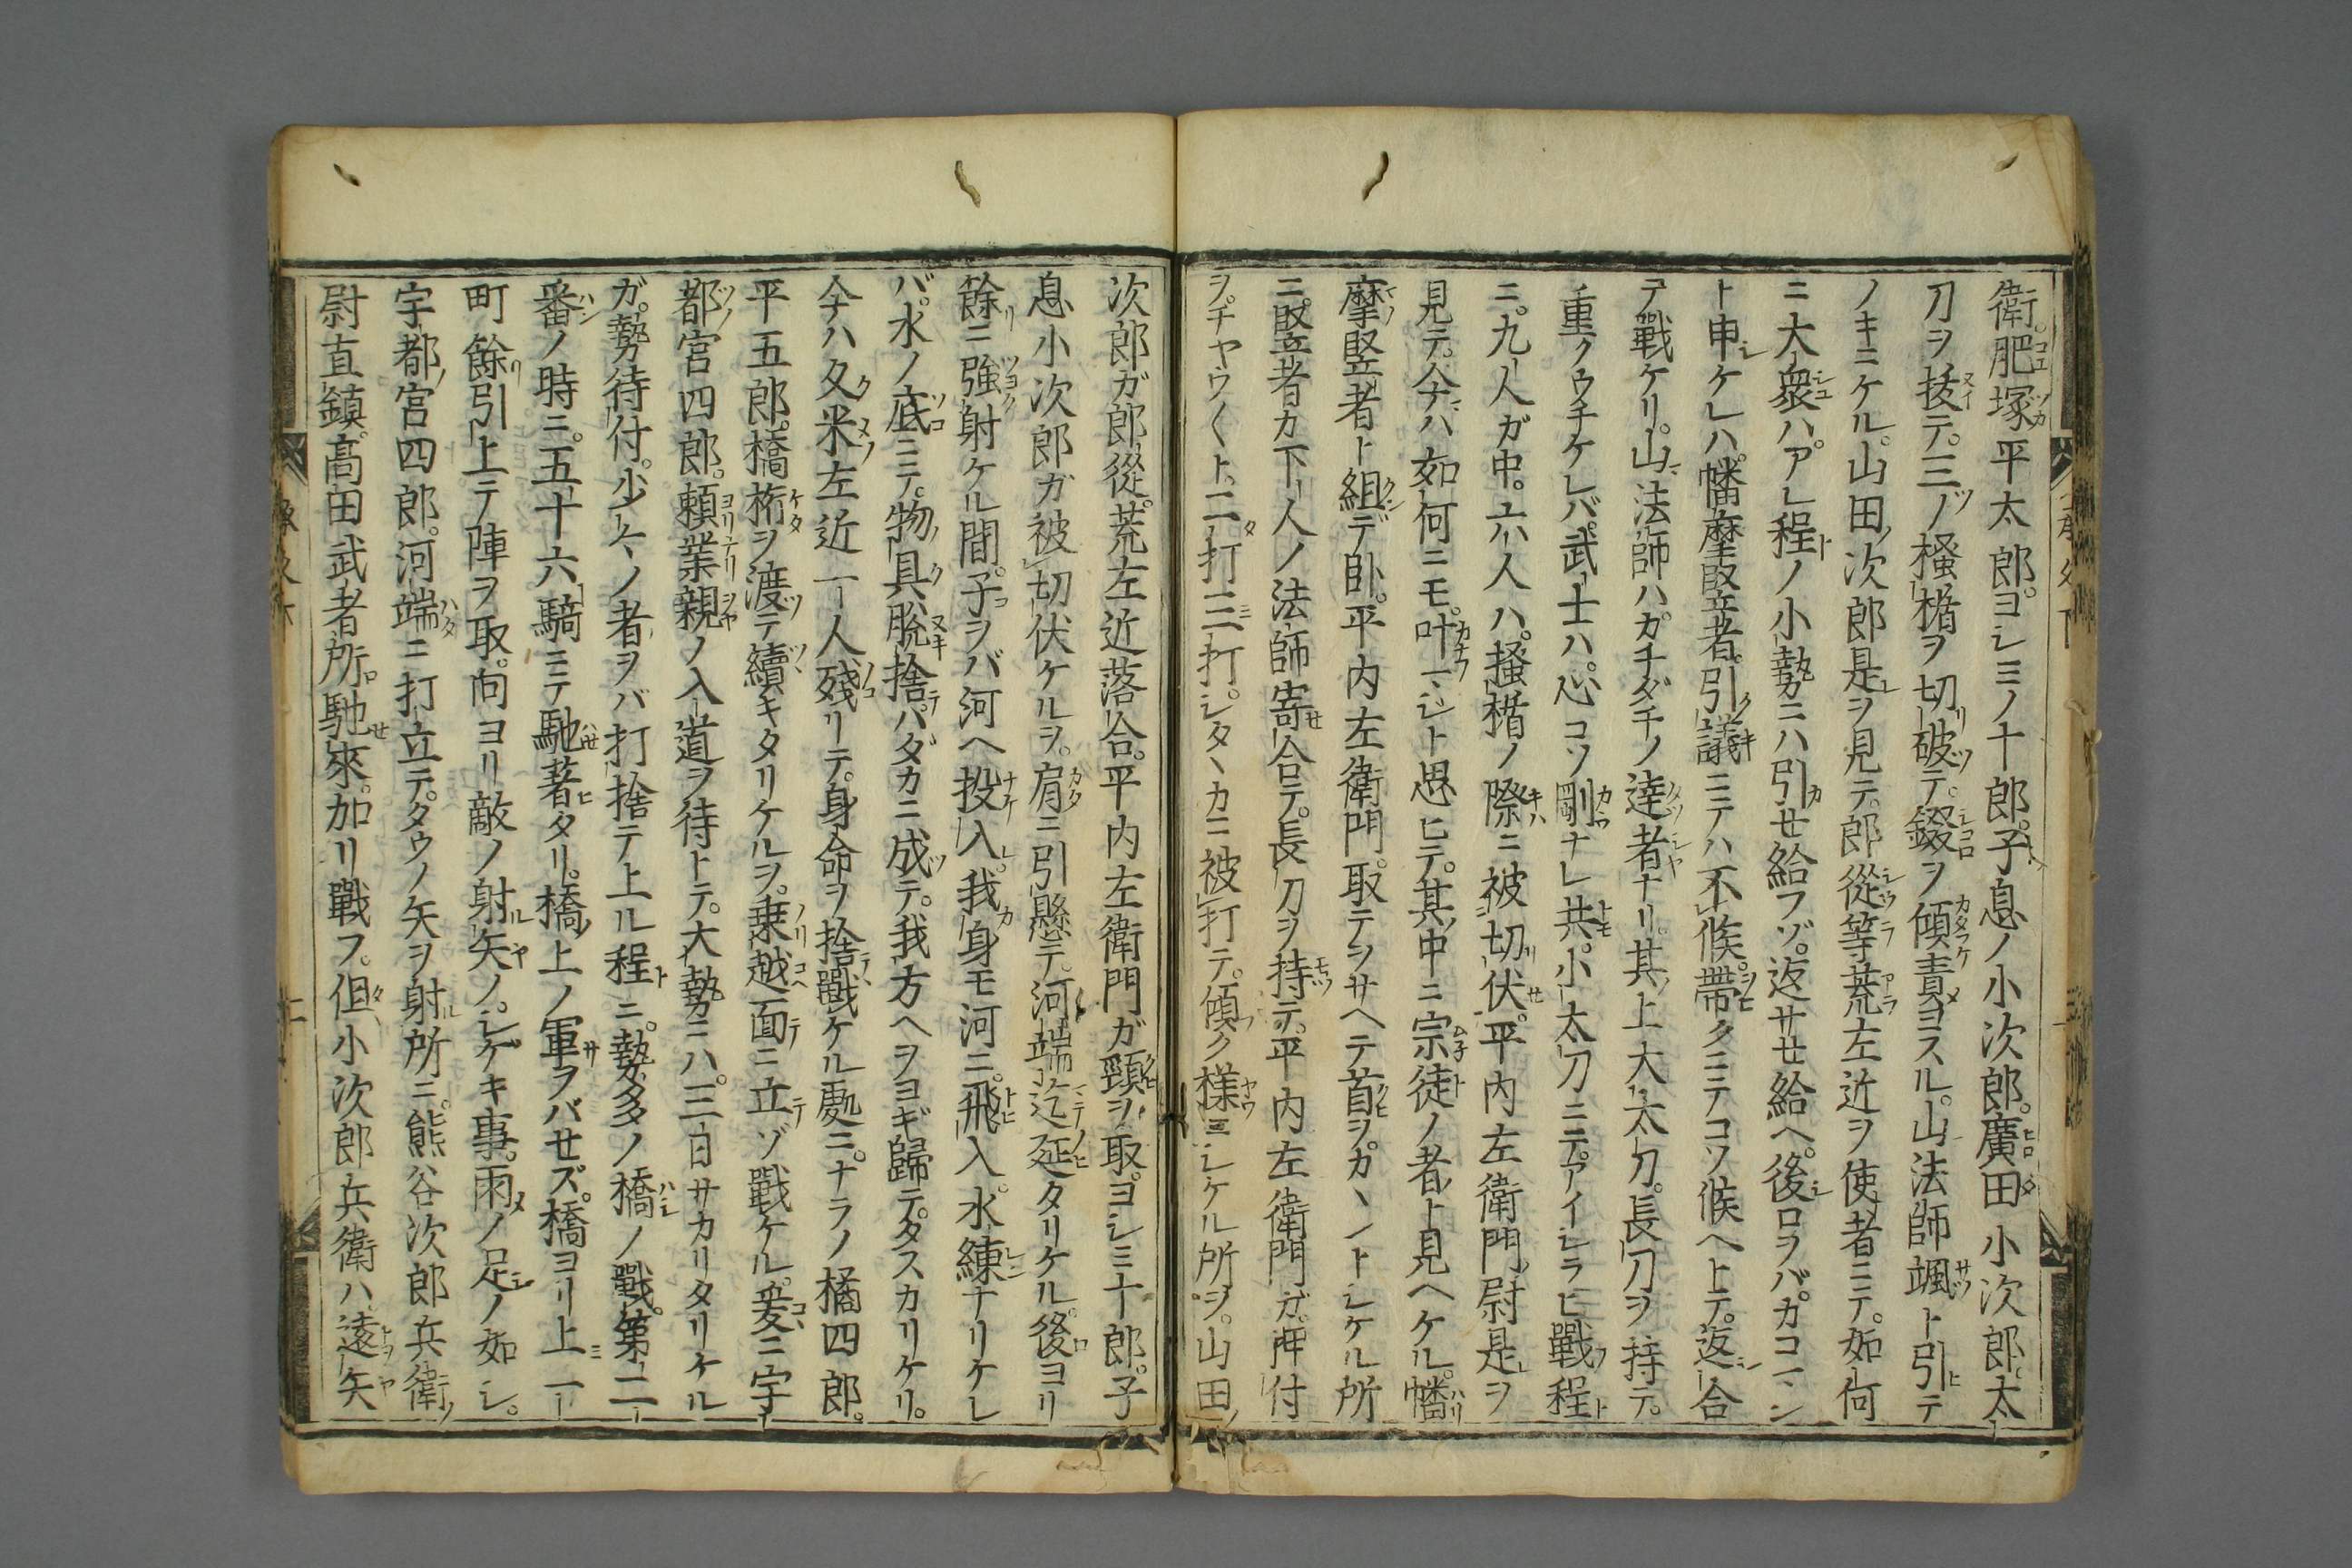 衛肥塚平太郎。ヨシミノ十郎。子息ノ小次郎。廣田小次郎。太
刀ヲ抜テ。三ノ掻楯ヲ切破テ。錣ヲ傾責ヨスル。山法師颯ト引テ
ノキニケル。山田次郎是ヲ見テ。郎從等荒左近ヲ使者ニテ。如何
ニ大衆ハアレ程ノ小勢ニハ引せ給フゾ。返サせ給ヘ。後ロヲバカコマン
ト申ケレハ。幡摩竪者。引議ニテハ不候。帶タニテコソ候ヘトテ。返合
テ戰ケリ。山法師ハカチダチノ達者ナリ。其上大太刀。長刀ヲ持テ。
重クウチケレバ。武士ハ心コソ剛ナレ共。小太刀ニテアイシラヒ戰程
ニ。九人ガ中。六人ハ。掻楯ノ際ニ被切伏。平内左衛門尉是ヲ
見テ。今ハ如何ニモ。叶マシト思ヒテ。其中ニ宗徒ノ者ト見ヘケル。幡
摩竪者ト組デ臥。平内左衛門。取テヲサヘテ首ヲカヽントシケル所
ニ。竪者カ下人ノ法師寄合テ。長刀ヲ持テ。平内左衛門ガ。押付
ヲ。チヤウ〱ト。二打三打。シタヽカニ被打テ。傾ク様ニシケル所ヲ。山田
次郎ガ郎從。荒左近落合。平内左衛門ガ頸ヲ取。ヨシミ十郎。子
息小次郎ガ被切伏ケルヲ。肩ニ引懸テ。河端迄延タリケル。後ヨリ
餘ニ強射ケル間。子ヲバ河ヘ投入。我身モ河ニ。飛入。水練ナリケレ
バ。水ノ底ニテ。物具脱捨。ハダカニ成テ。我方ヘヲヨギ歸テ。タスカリケリ。
今ハ久米左近一人殘リテ。身命ヲ捨戰ケル處ニ。ナラノ橘四郎。
平五郎。橋桁ヲ渡テ續キタリケルヲ。乗越面ニ立ゾ戰ケル。爰ニ宇
都宮四郎。頼業親ノ入道ヲ待トテ。大勢ニハ。三日サカリタリケル
ガ。勢待付。少々ノ者ヲバ打捨テ上ル程ニ。勢多ノ橋ノ戰。第二
番ノ時ニ。五十六騎ニテ馳著タリ。橋上ノ軍ヲバせズ。橋ヨリ上一
町餘引上テ陣ヲ取。向ヨリ敵ノ射矢ノ。シゲキ事。雨ノ足ノ如シ。
宇都宮四郎。河端ニ打立テ。タウノ矢ヲ射所ニ。熊谷次郎兵衛
尉直鎮。高田武者所。馳來。加リ戰フ。但小次郎兵衛ハ遠矢